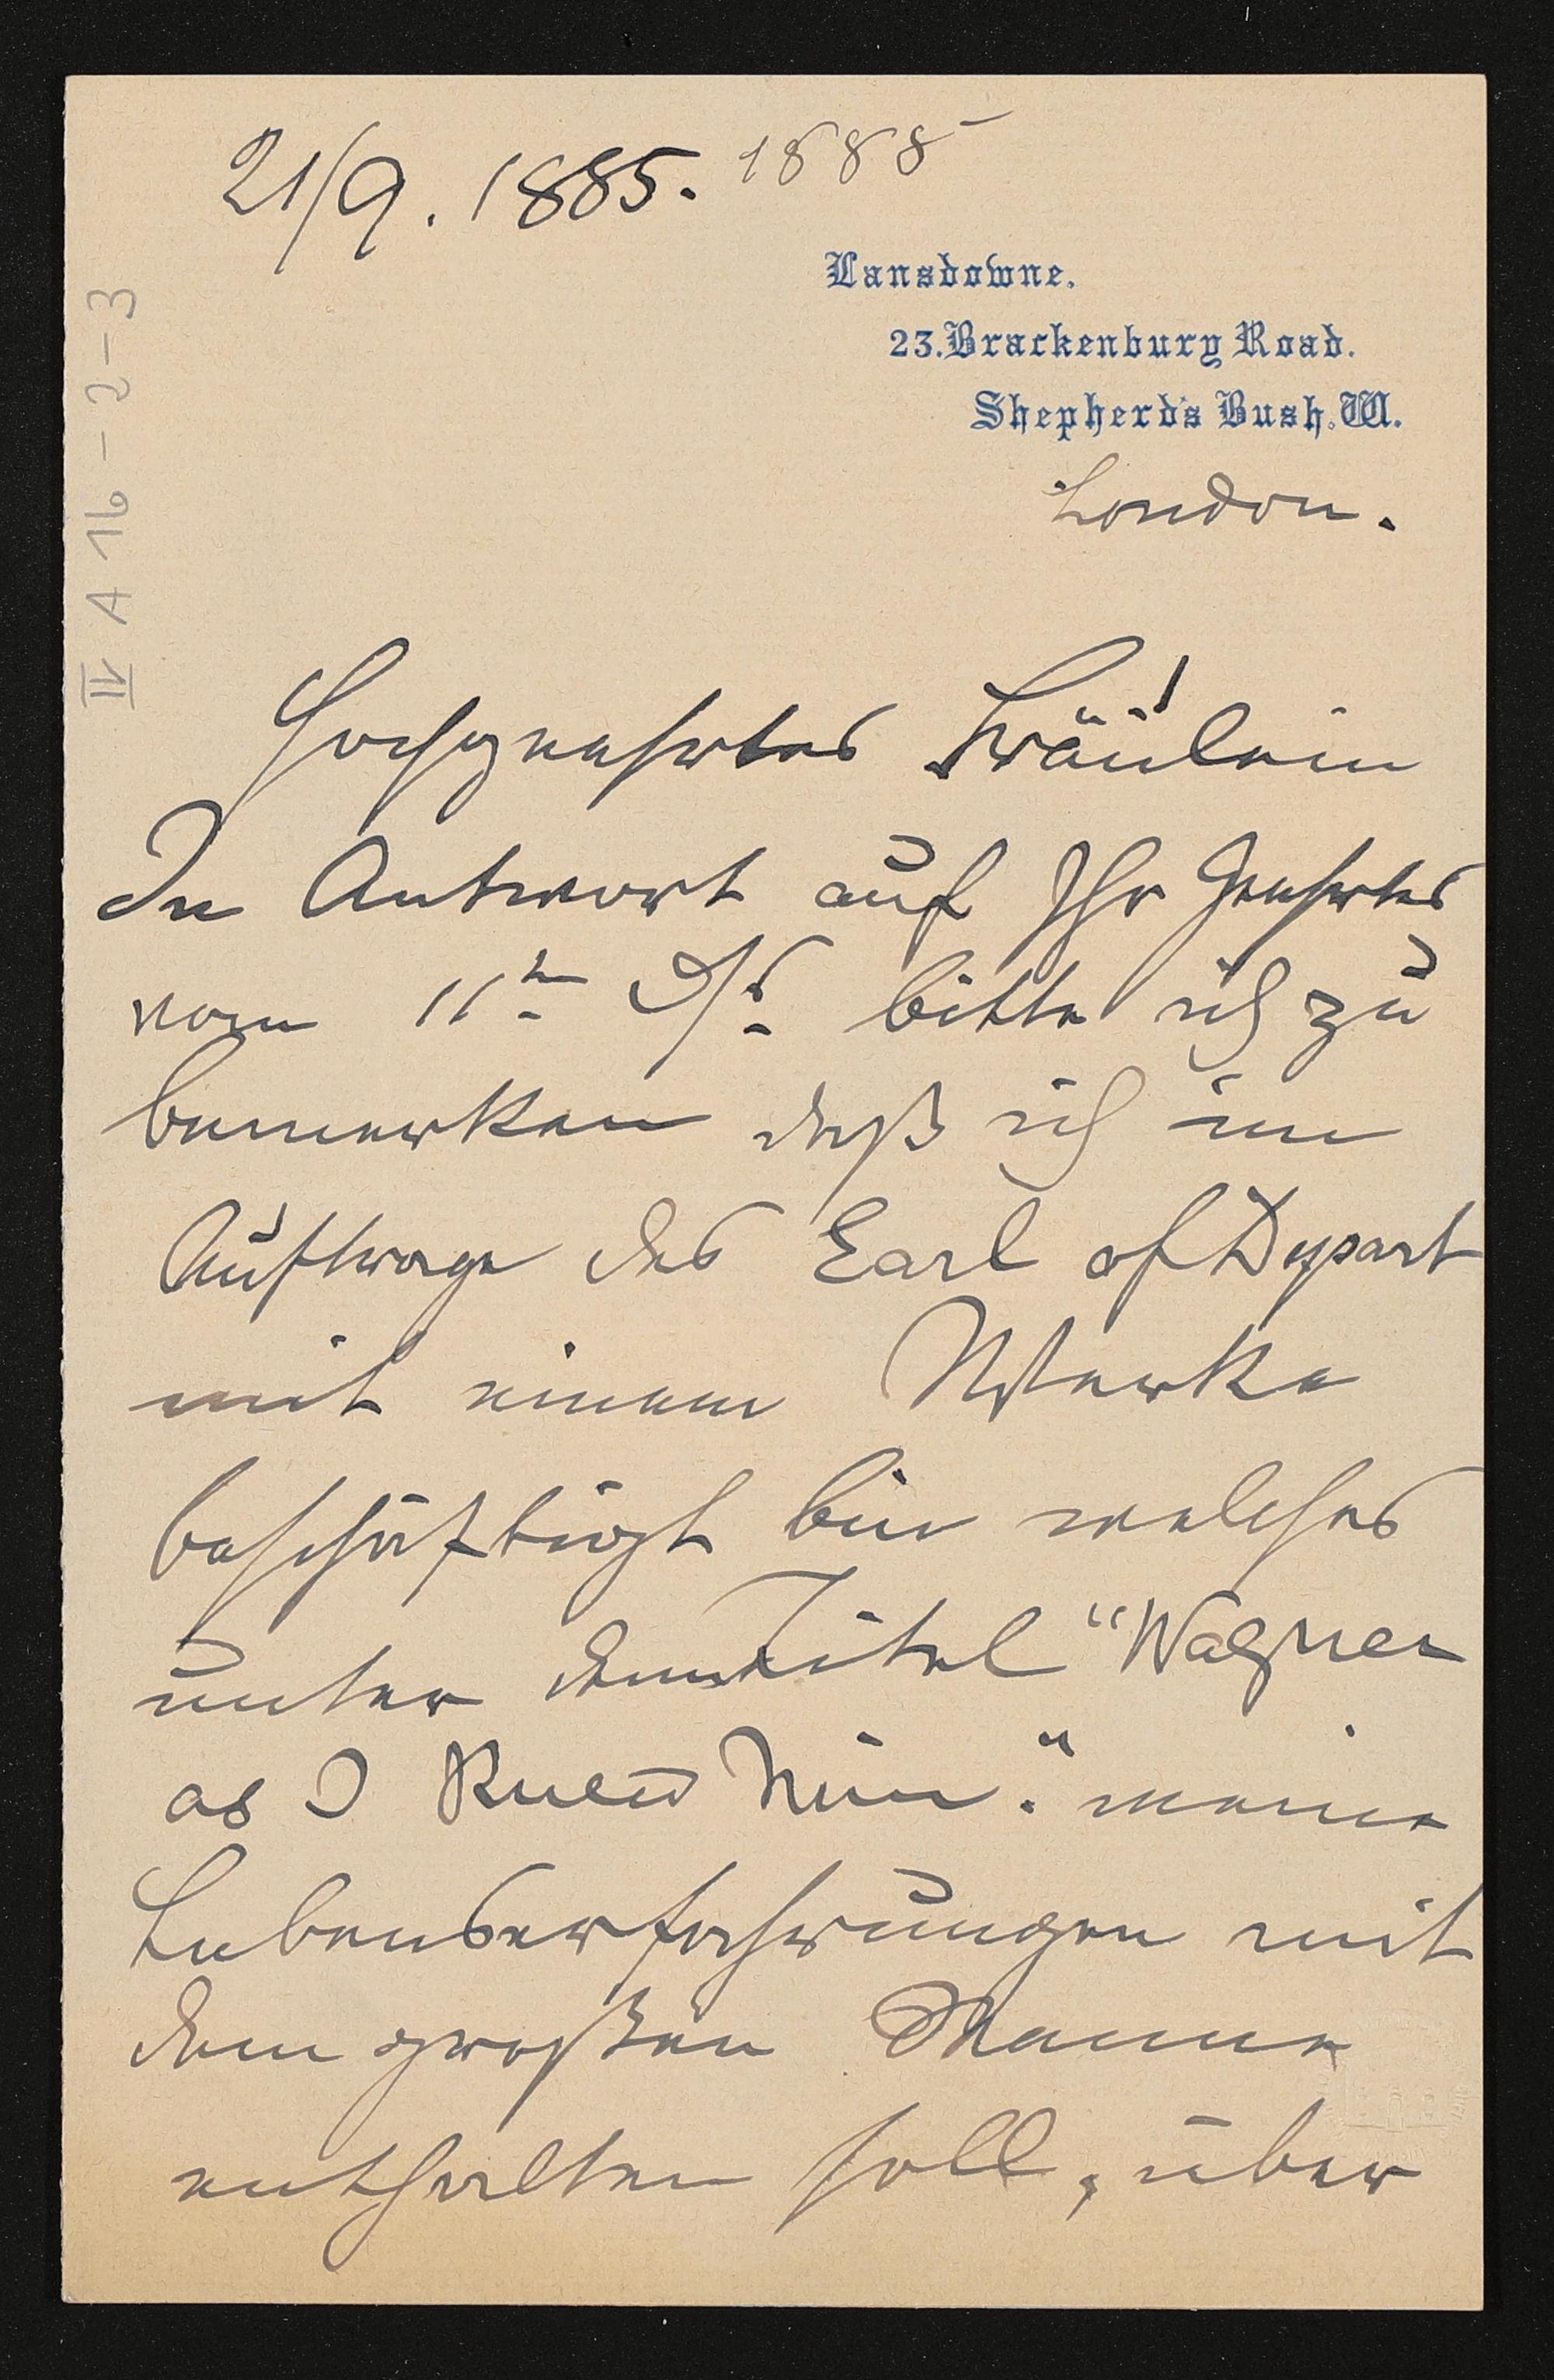 21/9. 1885. 1885
Lansdowne.
23. Brackenbury Road.
Shepherd's Bush. W.
London.
IV A 16-2-3
Hochgeehrtes Fräulein!
In Antwort auf Ihr Geehrtes
vom 11ten bitte ich zu
bemerken daß ich im
Auftrage des Earl of Dysart
mit einem Werke
beschäftigt bin welches
unter dem Titel "Wagner
as I Knew Him." meine
Lebenserfahrungen mit
dem großen Manne
enthalten soll, über